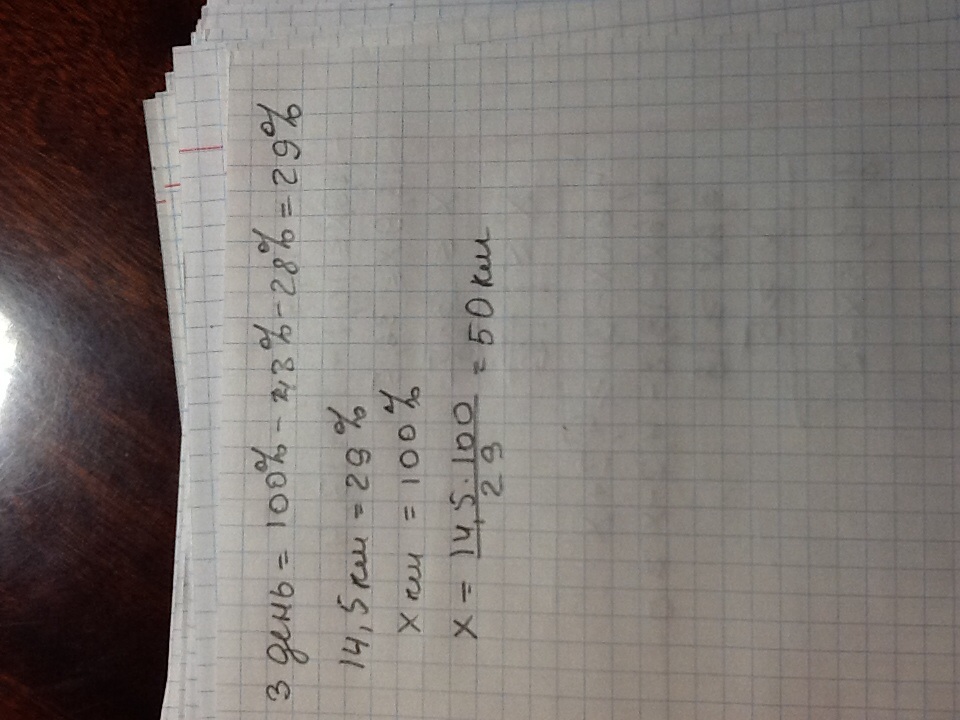 3 день = 100% - 43% - 28% = 29%
14,5 км = 29%
x км = 100%
x = 14,5 · 100 / 29 = 50 км